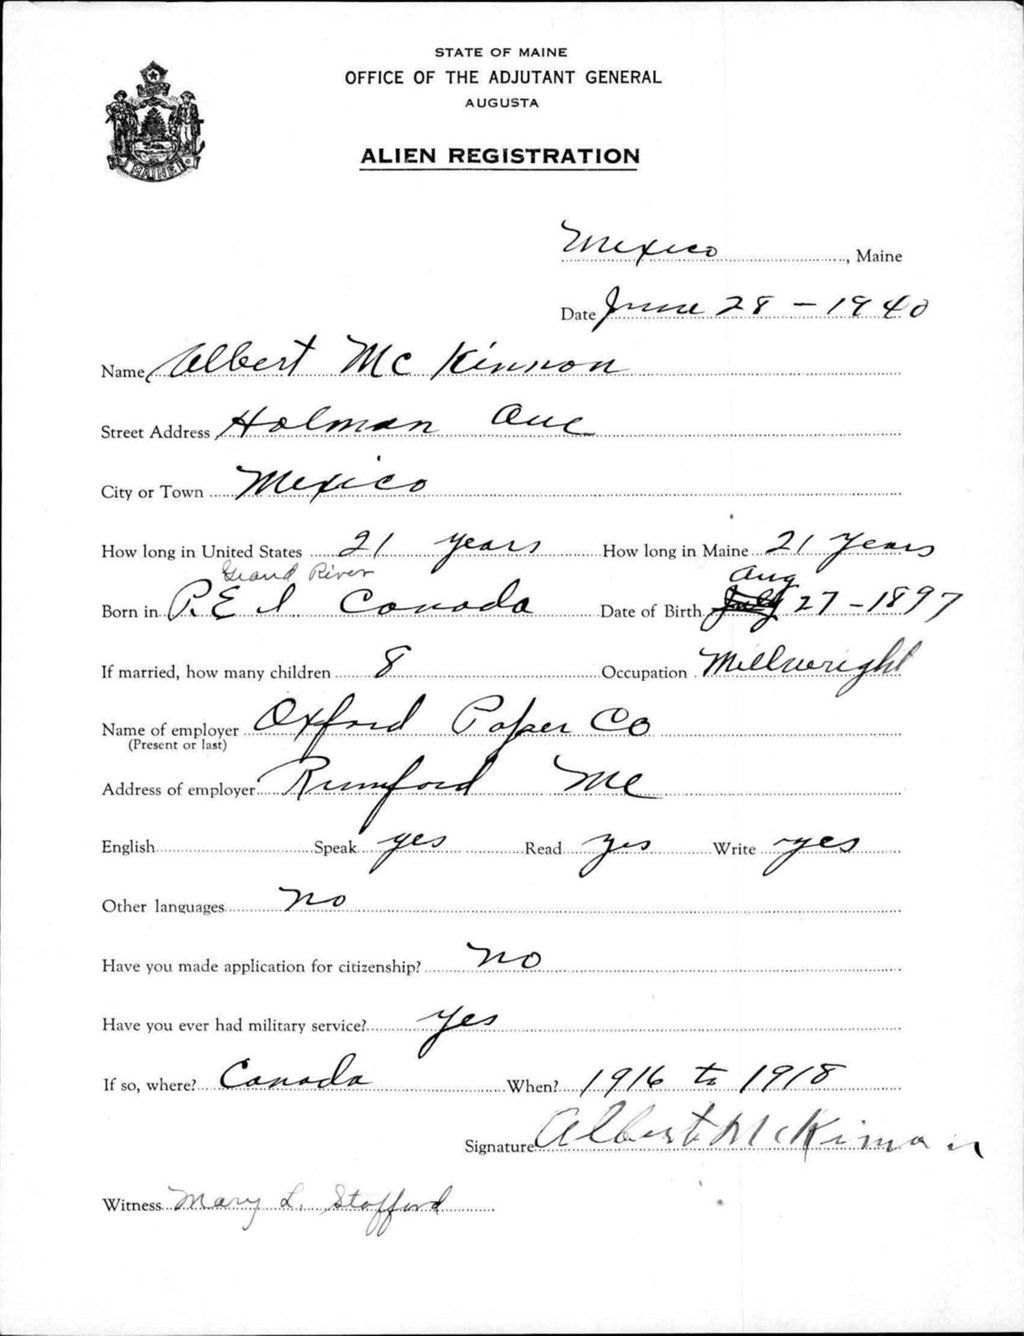 STATE OF MAINE
OFFICE OF THE ADJUTANT GENERAL
AUGUSTA
ALIEN REGISTRATION
MAINE
Mexico, Maine
Date June 28 - 1940
Name Albert McKinnon
Street Address Holman Ave
City or Town Mexico
How long in United States 21 years How long in Maine 21 Years
Grand River Aug
Born in P.E.I Canada Date of Birth July 27 - 1897
If married, how many children 8 Occupation Millwright
Name of employer Oxford Paper Co
(Present or last)
Address of employer Rumford Me
English Speak yes Read yes Write yes
Other languages no
Have you made application for citizenship? no
Have you ever had military service? yes
If so, where? Canada When? 1916 to 1918
Signature Albert McKinnon
Witness Mary L. Stafford